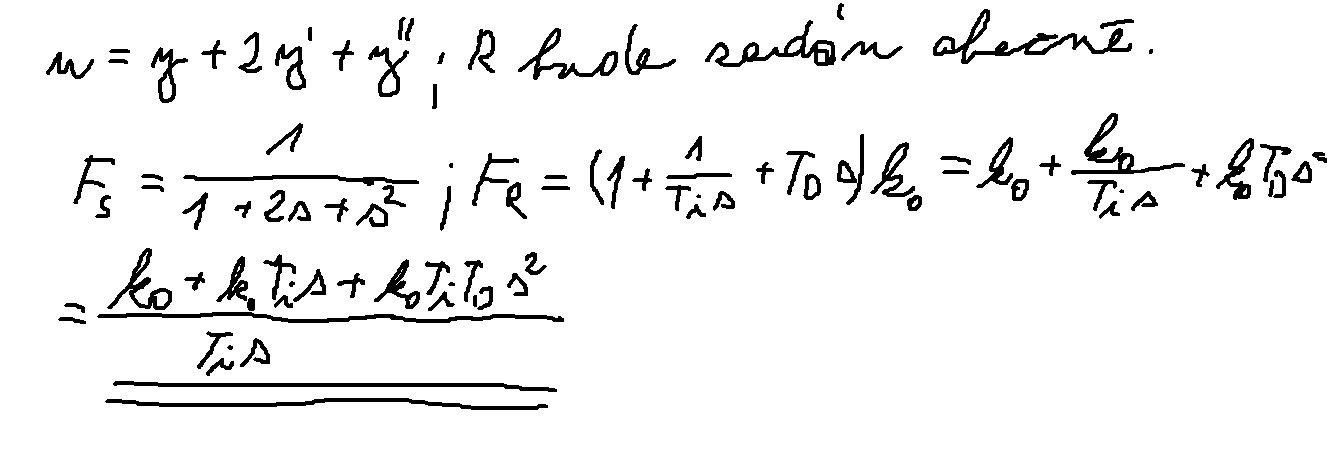 u = y + 2y' + y'' ; R bude zadán obecně.
F_S = 1/(1 + 2s + s²) ; F_R = (1 + 1/(T_i s) + T_D s) k_0 = k_0 + k_0/(T_i s) + k_0 T_D s
= (k_0 + k_0 T_i s + k_0 T_i T_D s²)/(T_i s)